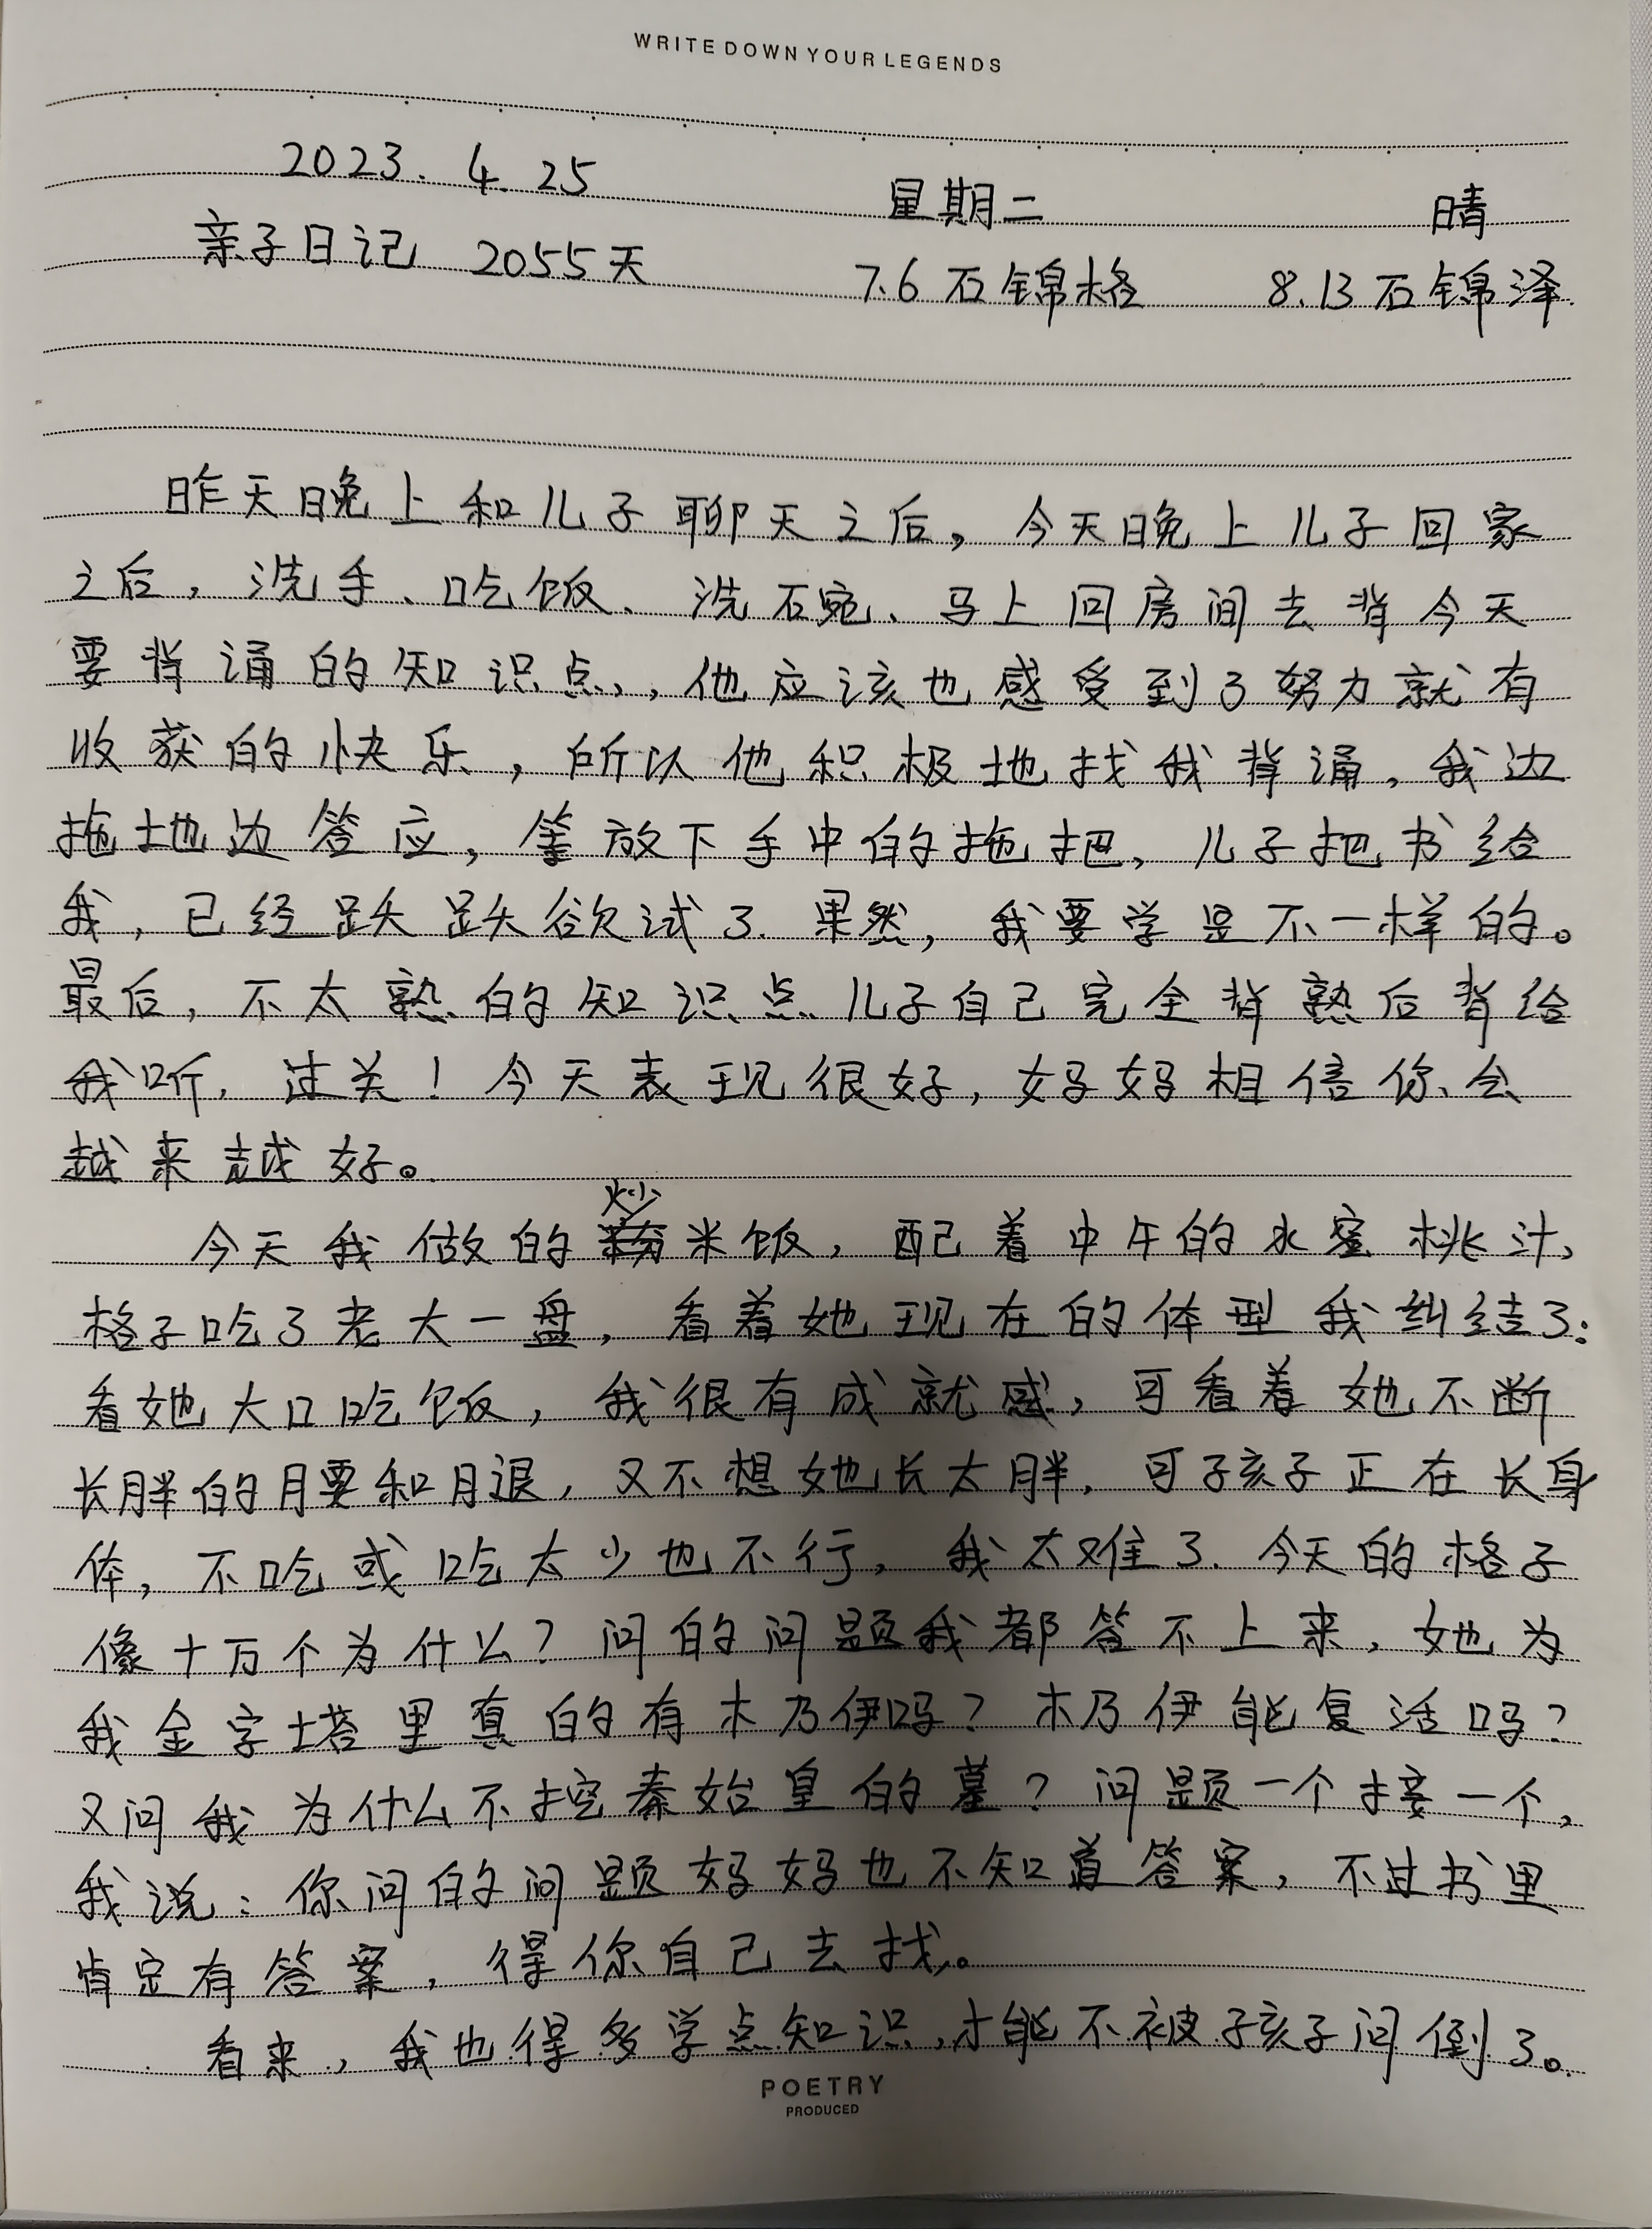 WRITE DOWN YOUR LEGENDS
2023. 4. 25 星期二 晴
亲子日记 2055天 7.6石锦格 8.13石锦泽
昨天晚上和儿子聊天之后，今天晚上儿子回家
之后，洗手、吃饭、洗碗、马上回房间去背今天
要背诵的知识点，他应该也感受到了努力就有
收获的快乐，所以他积极地找我背诵，我边
拖地边答应，等放下手中的拖把，儿子把书给
我，已经跃跃欲试了.果然，我要学是不一样的。
最后，不太熟的知识点儿子自己完全背熟后背给
我听，过关！今天表现很好，妈妈相信你会
越来越好。
今天我做的炒米饭，配着中午的水蜜桃汁，
格子吃了老大一盘，看着她现在的体型我纠结了：
看她大口吃饭，我很有成就感，可看着她不断
长胖的腰和腿，又不想她长太胖，可孩子正在长身
体，不吃或吃太少也不行，我太难了.今天的格子
像十万个为什么？问的问题我都答不上来，她为
我金字塔里真的有木乃伊吗？木乃伊能复活吗？
又问我为什么不挖秦始皇的墓？问题一个接一个，
我说：你问的问题妈妈也不知道答案，不过书里
肯定有答案，得你自己去找。
看来，我也得多学点知识，才能不被孩子问倒了。
POETRY
PRODUCED